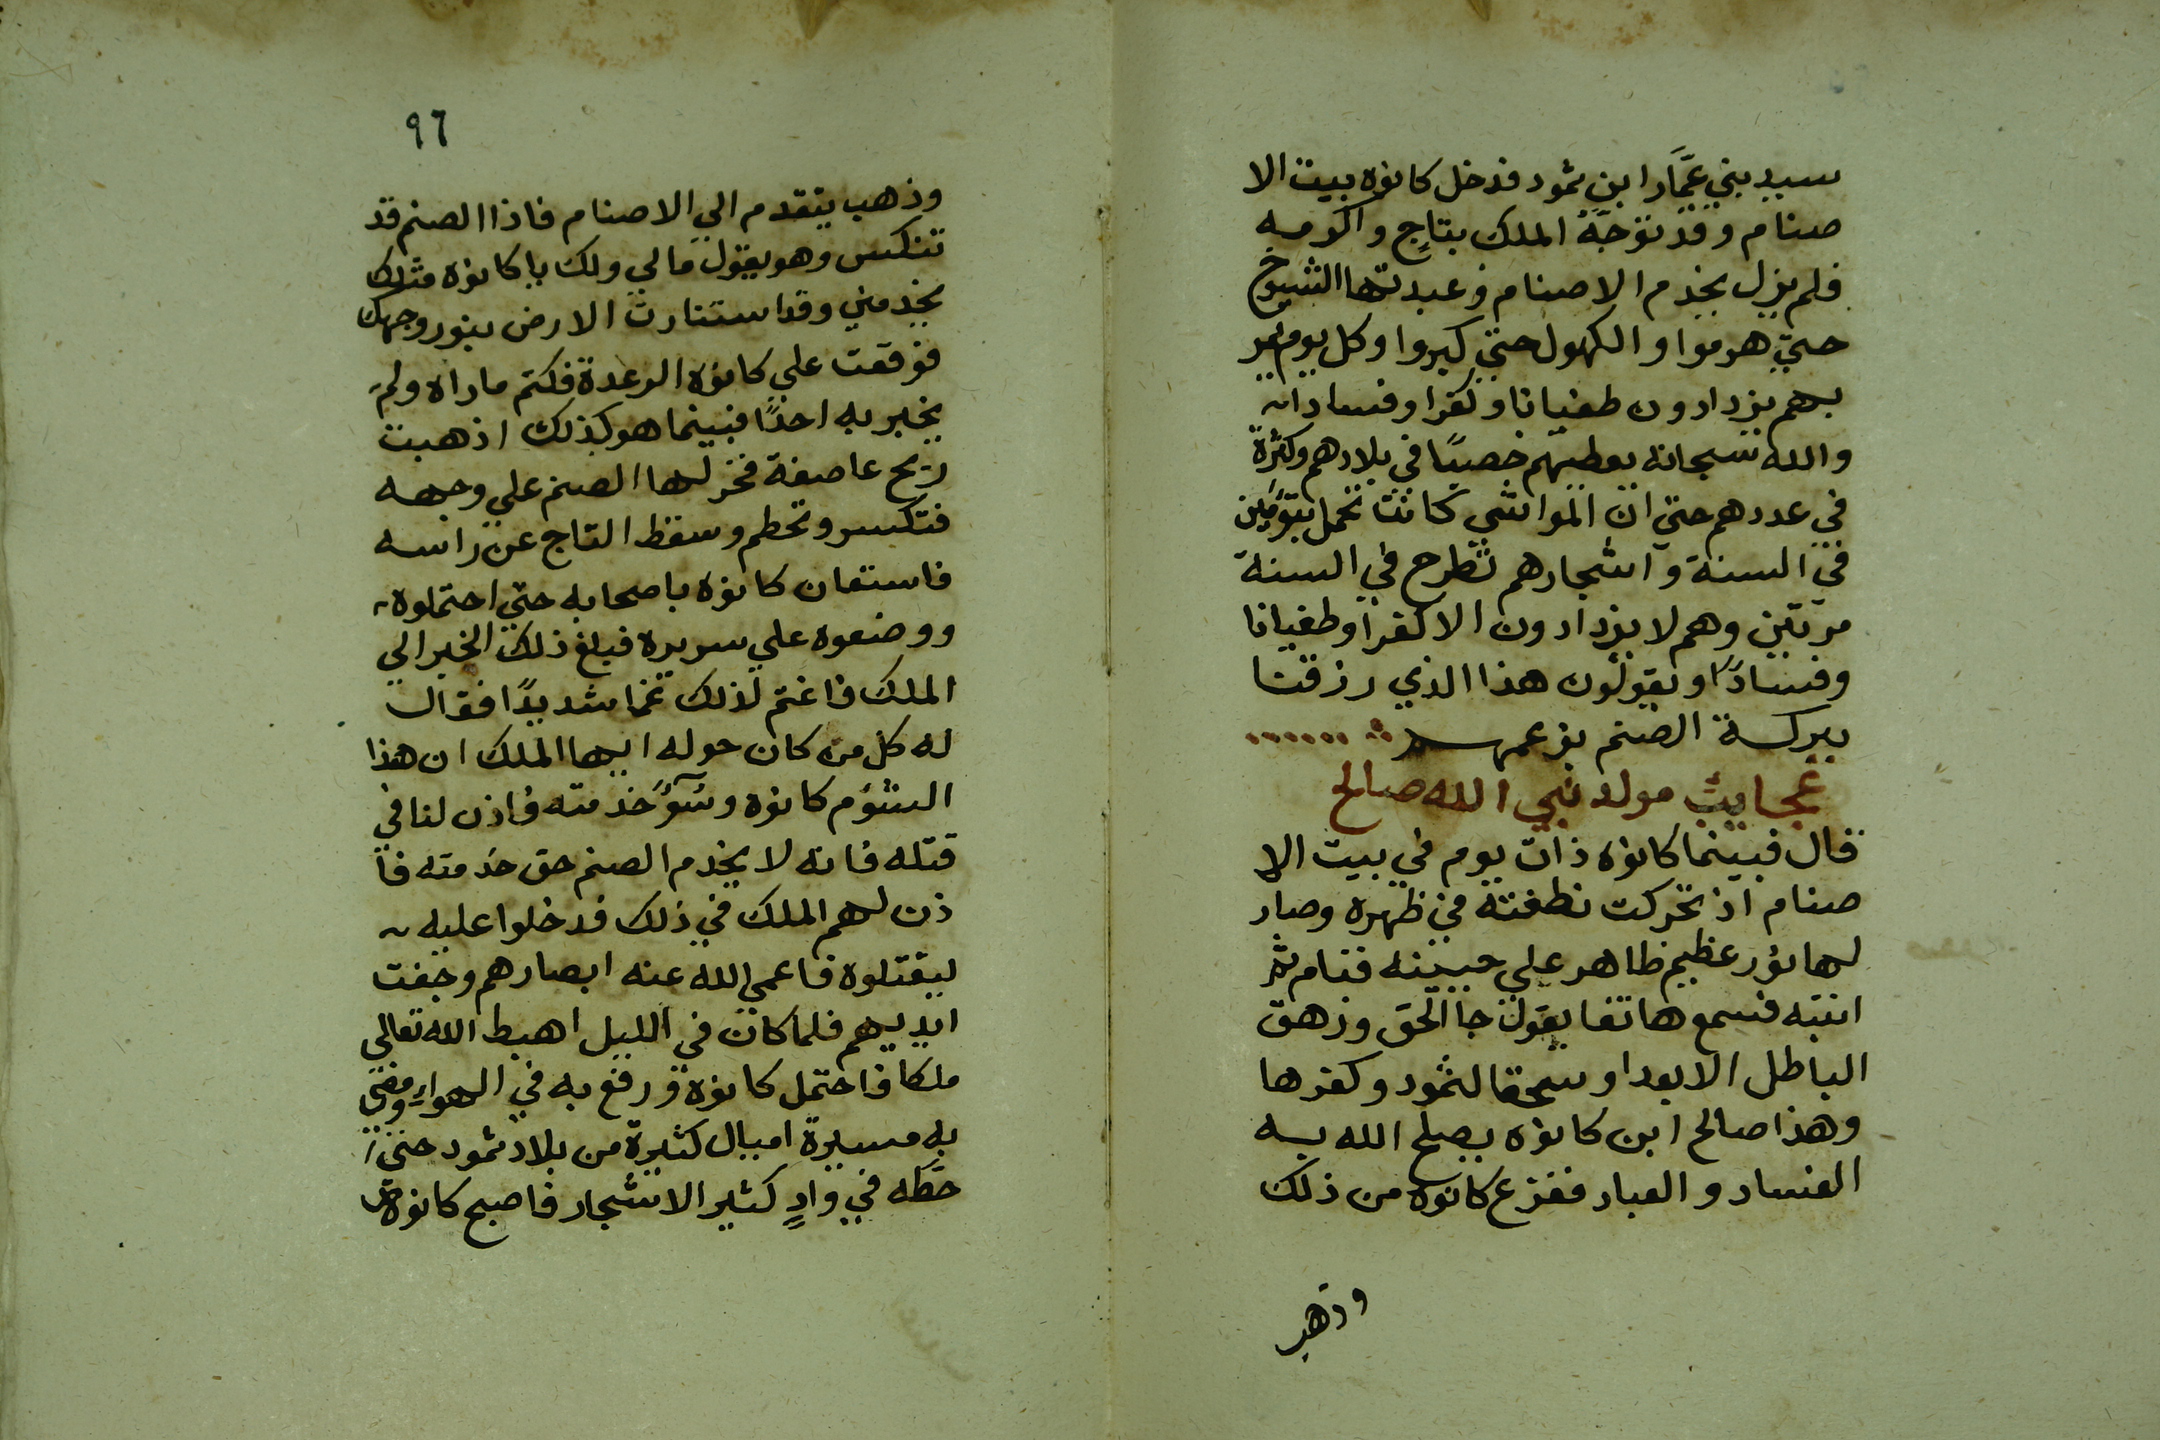 سيد بني عمّار ابن ثمود فدخل كانوه بيت الا
صنام وقد توّجَهُ الملك بتاجٍ واكرمه
فلم يزل يخدم الاصنام وعبدتها الشيوخ
حتي هرموا والكهول حتي كبروا وكل يوم يمر
بهم يزدادون طغيانا وكفرا وفسادا
والله سبحانه يعطيهم خصبًا في بلادهم وكثرة
في عددهم حتي ان المواشي كانت تحمل بتوَمَين
في السنة واشجارهم تطرح في السنة
مرتين وهم لا يزدادون الا كفرا وطغيانا
وفسادًا ويقولون هذا الذي رزقنا
ببركة الصنم بزعمهم
عجايب مولد نبي الله صالح
قال فبينما كانوه ذات يوم في بيت الا
صنام اذ تحركت نطفته في ظهره وصار
لها نور عظيم ظاهر علي جبينه فنام ثم
انتبه فسمع هاتفا يقول جا الحق وزهق
الباطل الا بعدا وسحقا لثمود وكفرها
وهذا صالح ابن كانوه يصلح الله به
الفساد والعباد ففزع كانوه من ذلك
وذهب
٩٦
وذهب يتقدم الي الاصنام فاذا الصنم قد
تنكس وهو يقول مالي ولك يا كانوه مثلك
يخدمني وقد استنارت الارض بنور وجهك
فوقعت علي كانوه الرعدة فكتم ماراه ولم
يخبر به احدًا فبينما هو كذلك اذ هبت
ريح عاصفة فخر لها الصنم علي وجهه
فتكسر وتحطم وسقط التاج عن راسه
فاستعان كانوه باصحابه حتي احتملوه
ووضعوه علي سريره فبلغ ذلك الخبر الي
الملك فاغتم لذلك غما شديدًا فقال
له كل من كان حوله ايها الملك ان هذا
الشؤم كانوه وسُوَّ خدمته فاذن لنا في
قتله فانه لا يخدم الصنم حق خدمته فا
ذن لهم الملك في ذلك فدخلوا عليه
ليقتلوه فاعمي الله عنه ابصارهم وجفت
ايديهم فلما كان في الليل اهبط الله تعالي
ملكا فاحتمل كانوه ورفع به في الهواءِ ومضي
به مسيرة اميال كثيرة من بلاد ثمود حتي
حطّه في وادٍ كثير الاشجار فاصبح كانوه